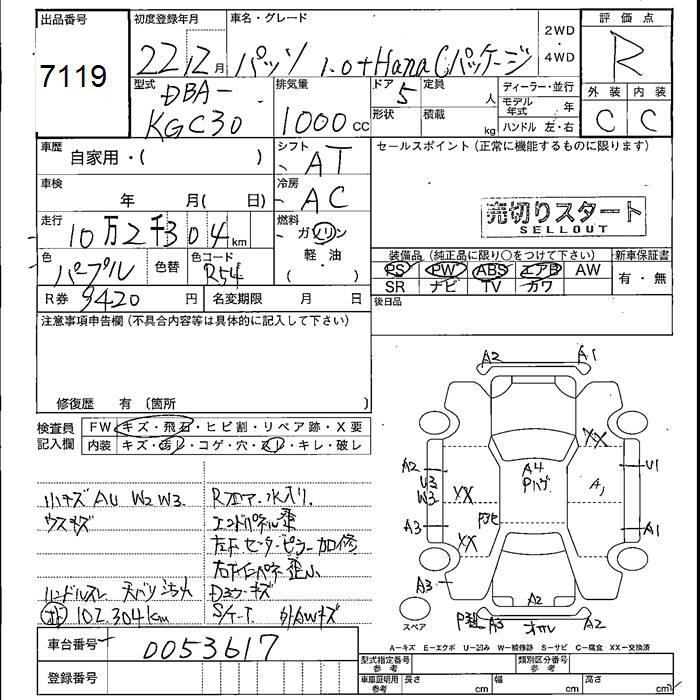 出品番号 初度登録年月 車名・グレード 評価点
7119 22 12月 パッソ 1.0+Hana Cパッケージ 2WD・4WD R
型式 排気量 ドア 定員 ディーラー・並行 外装 内装
DBA-KGC30 1000cc 5 人 モデル年式 年 C C
形状 積載 kg ハンドル 左・右
車歴 自家用・( ) シフト AT セールスポイント(正常に機能するものに限ります)
車検 年 月( 日) 冷房 AC
売切りスタート
SELLOUT
走行 10万2千304km 燃料 ガソリン・軽・油 ( )
色 パープル 色替 色コード R54
装備品(純正品に限り○をつけて下さい) 新車保証書
PS PW ABS エアB AW 有・無
SR ナビ TV カワ
R券 9420円 名変期限 月 日 後日品
注意事項申告欄(不具合内容等は具体的に記入して下さい)
修復歴 有(箇所
検査員記入欄 FW キズ・飛石・ヒビ割・リペア跡・X要
内装 キズ・汚レ・コゲ・穴・スレ・キレ・破レ
小キズ AU W2 W3 Rフロア水入り
ウスキズ エンドパネル歪
左右センターピラー加修
ハンドルスレ
102,304km S/K-T 外AWキズ
A2 A1
XX
A4
A2 U3 W3 XX A1 U1
A3 XX A1
A3 A2
スペア A3 A2
A-キズ E-エクボ U-凹み W-補修跡 S-サビ C-腐食 XX-交換済
車台番号 0053617
型式指定番号 参考 類別区分番号 参考
登録番号 車庫証明用 参考 長さ cm 幅 cm 高さ cm